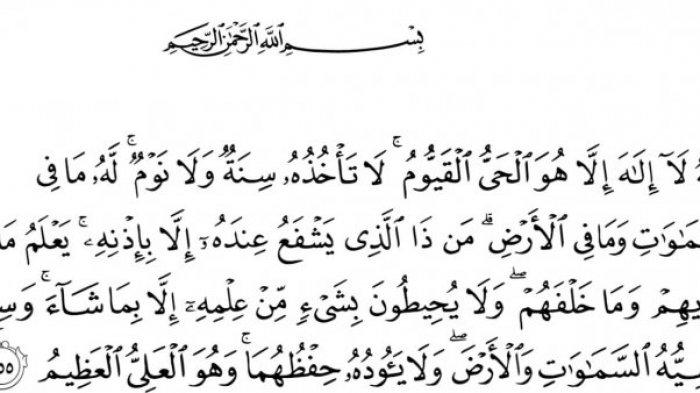 بِسْمِ ٱللَّهِ ٱلرَّحْمَٰنِ ٱلرَّحِيمِ
هُ لَآ إِلَٰهَ إِلَّا هُوَ ٱلْحَىُّ ٱلْقَيُّومُ ۚ لَا تَأْخُذُهُۥ سِنَةٌ وَلَا نَوْمٌ ۚ لَّهُۥ مَا فِى
مَٰوَٰتِ وَمَا فِى ٱلْأَرْضِ ۗ مَن ذَا ٱلَّذِى يَشْفَعُ عِندَهُۥٓ إِلَّا بِإِذْنِهِۦ ۚ يَعْلَمُ مَا
يهِمْ وَمَا خَلْفَهُمْ ۖ وَلَا يُحِيطُونَ بِشَىْءٍ مِّنْ عِلْمِهِۦٓ إِلَّا بِمَا شَآءَ ۚ وَسِ
سِيُّهُ ٱلسَّمَٰوَٰتِ وَٱلْأَرْضَ ۖ وَلَا يَـُٔودُهُۥ حِفْظُهُمَا ۚ وَهُوَ ٱلْعَلِىُّ ٱلْعَظِيمُ ٥٥